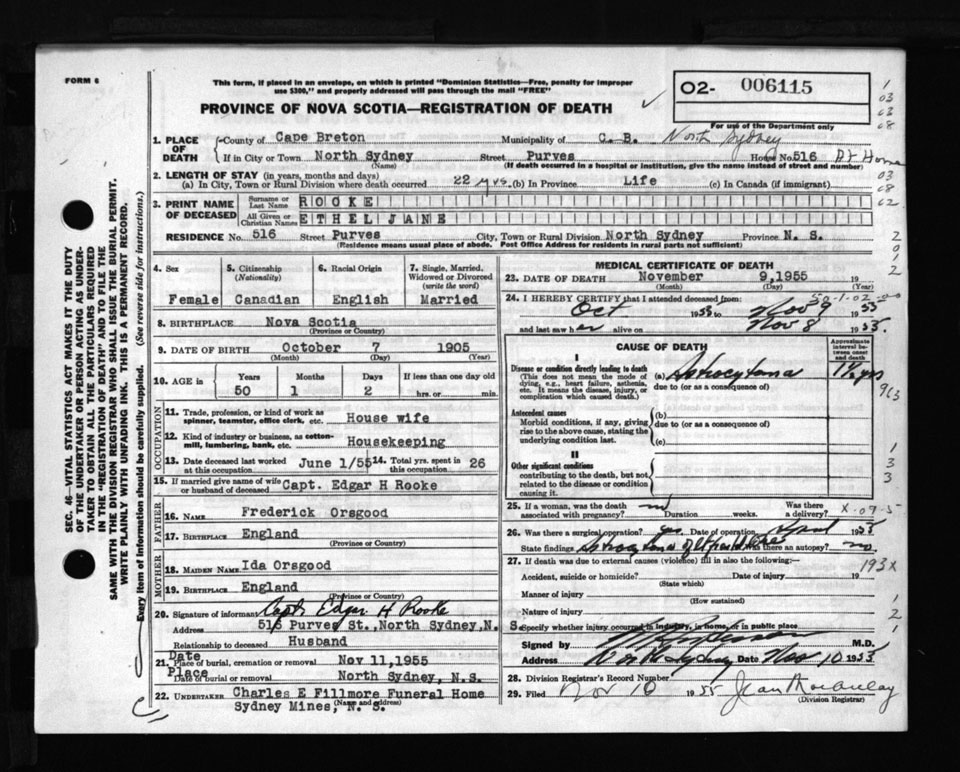 FORM 6
This form, if placed in an envelope, on which is printed "Dominion Statistics—Free, penalty for improper
use $300," and properly addressed will pass through the mail "FREE"
PROVINCE OF NOVA SCOTIA—REGISTRATION OF DEATH
02- 006115
For use of the Department only
1. PLACE OF DEATH
County of Cape Breton Municipality of C. B. North Sydney
If in City or Town North Sydney Street Purves House No. 516 At Home
(Name) (If death occurred in a hospital or institution, give the name instead of street and number)
2. LENGTH OF STAY (in years, months and days)
(a) In City, Town or Rural Division where death occurred 22 yrs. (b) In Province Life (c) In Canada (if immigrant)
3. PRINT NAME OF DECEASED
Surname or Last Name ROOKE
All Given or Christian Names ETHEL JANE
RESIDENCE No. 516 Street Purves City, Town or Rural Division North Sydney Province N. S.
(Residence means usual place of abode. Post Office Address for residents in rural parts not sufficient)
4. Sex Female
5. Citizenship (Nationality) Canadian
6. Racial Origin English
7. Single, Married, Widowed or Divorced (write the word) Married
8. BIRTHPLACE Nova Scotia
(Province or Country)
9. DATE OF BIRTH October 7 1905
(Month) (Day) (Year)
10. AGE in Years 50 Months 1 Days 2 If less than one day old hrs. or min.
OCCUPATION
11. Trade, profession, or kind of work as spinner, teamster, office clerk, etc. House wife
12. Kind of industry or business, as cotton-mill, lumbering, bank, etc. Housekeeping
13. Date deceased last worked at this occupation June 1/55 14. Total yrs. spent in this occupation 26
15. If married give name of wife or husband of deceased Capt. Edgar H Rooke
FATHER
16. NAME Frederick Orsgood
17. BIRTHPLACE England
(Province or Country)
MOTHER
18. MAIDEN NAME Ida Orsgood
19. BIRTHPLACE England
(Province or Country)
20. Signature of informant Capt. Edgar H Rooke
Address 516 Purves St., North Sydney, N. S.
Relationship to deceased Husband
Date
21. Place of burial, cremation or removal Nov 11, 1955
Place
Date of burial or removal North Sydney, N.S.
22. UNDERTAKER Charles E Fillmore Funeral Home
(Name and address)
Sydney Mines, N. S.
MEDICAL CERTIFICATE OF DEATH
23. DATE OF DEATH November 9, 1955 19
(Month) (Day) (Year)
24. I HEREBY CERTIFY that I attended deceased from:
Oct 1955 to Nov 9 1955
and last saw her alive on Nov 8 1955.
CAUSE OF DEATH
Approximate interval between onset and death
I
Disease or condition directly leading to death (a) Astrocytoma 1½ yrs
(This does not mean the mode of dying, e.g., heart failure, asthenia, etc. It means the disease, injury, or complication which caused death.)
due to (or as a consequence of)
Antecedent causes
Morbid conditions, if any, giving rise to the above cause, stating the underlying condition last.
(b)
due to (or as a consequence of)
(c)
II
Other significant conditions
contributing to the death, but not related to the disease or condition causing it.
25. If a woman, was the death associated with pregnancy? no Duration weeks. Was there a delivery?
X-09-5
26. Was there a surgical operation? yes. Date of operation April 1955
State findings Astrocytoma of Was there an autopsy? no
27. If death was due to external causes (violence) fill in also the following:
193X
Accident, suicide or homicide? Date of injury 19
(State which)
Manner of injury
(How sustained)
Nature of injury
Specify whether injury occurred in industry, in home, or in public place
Signed by M.D.
Address North Sydney Date Nov 10 1955
28. Division Registrar's Record Number
29. Filed Nov 10 1955
(Division Registrar)
SEC. 46—VITAL STATISTICS ACT MAKES IT THE DUTY
OF THE UNDERTAKER OR PERSON ACTING AS UNDER-
TAKER TO OBTAIN ALL THE PARTICULARS REQUIRED
IN THE "REGISTRATION OF DEATH" AND TO FILE THE
SAME WITH THE DIVISION REGISTRAR WHO SHALL ISSUE THE BURIAL PERMIT.
WRITE PLAINLY WITH UNFADING INK. THIS IS A PERMANENT RECORD.
Every item of information should be carefully supplied. (See reverse side for instructions.)